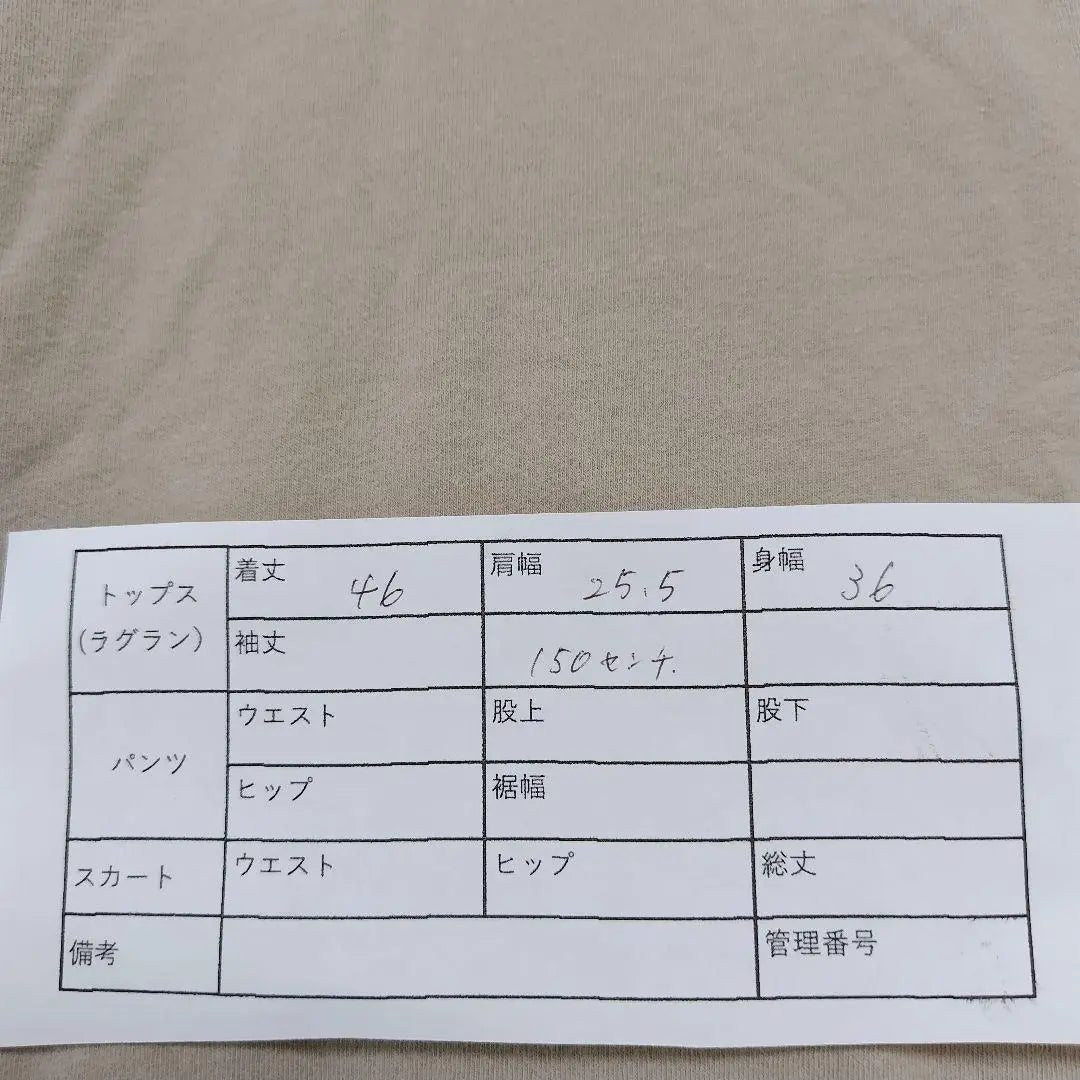 トップス
(ラグラン)
着丈 46
肩幅 25.5
身幅 36
袖丈
150センチ.
パンツ
ウエスト
股上
股下
ヒップ
裾幅
スカート
ウエスト
ヒップ
総丈
備考
管理番号